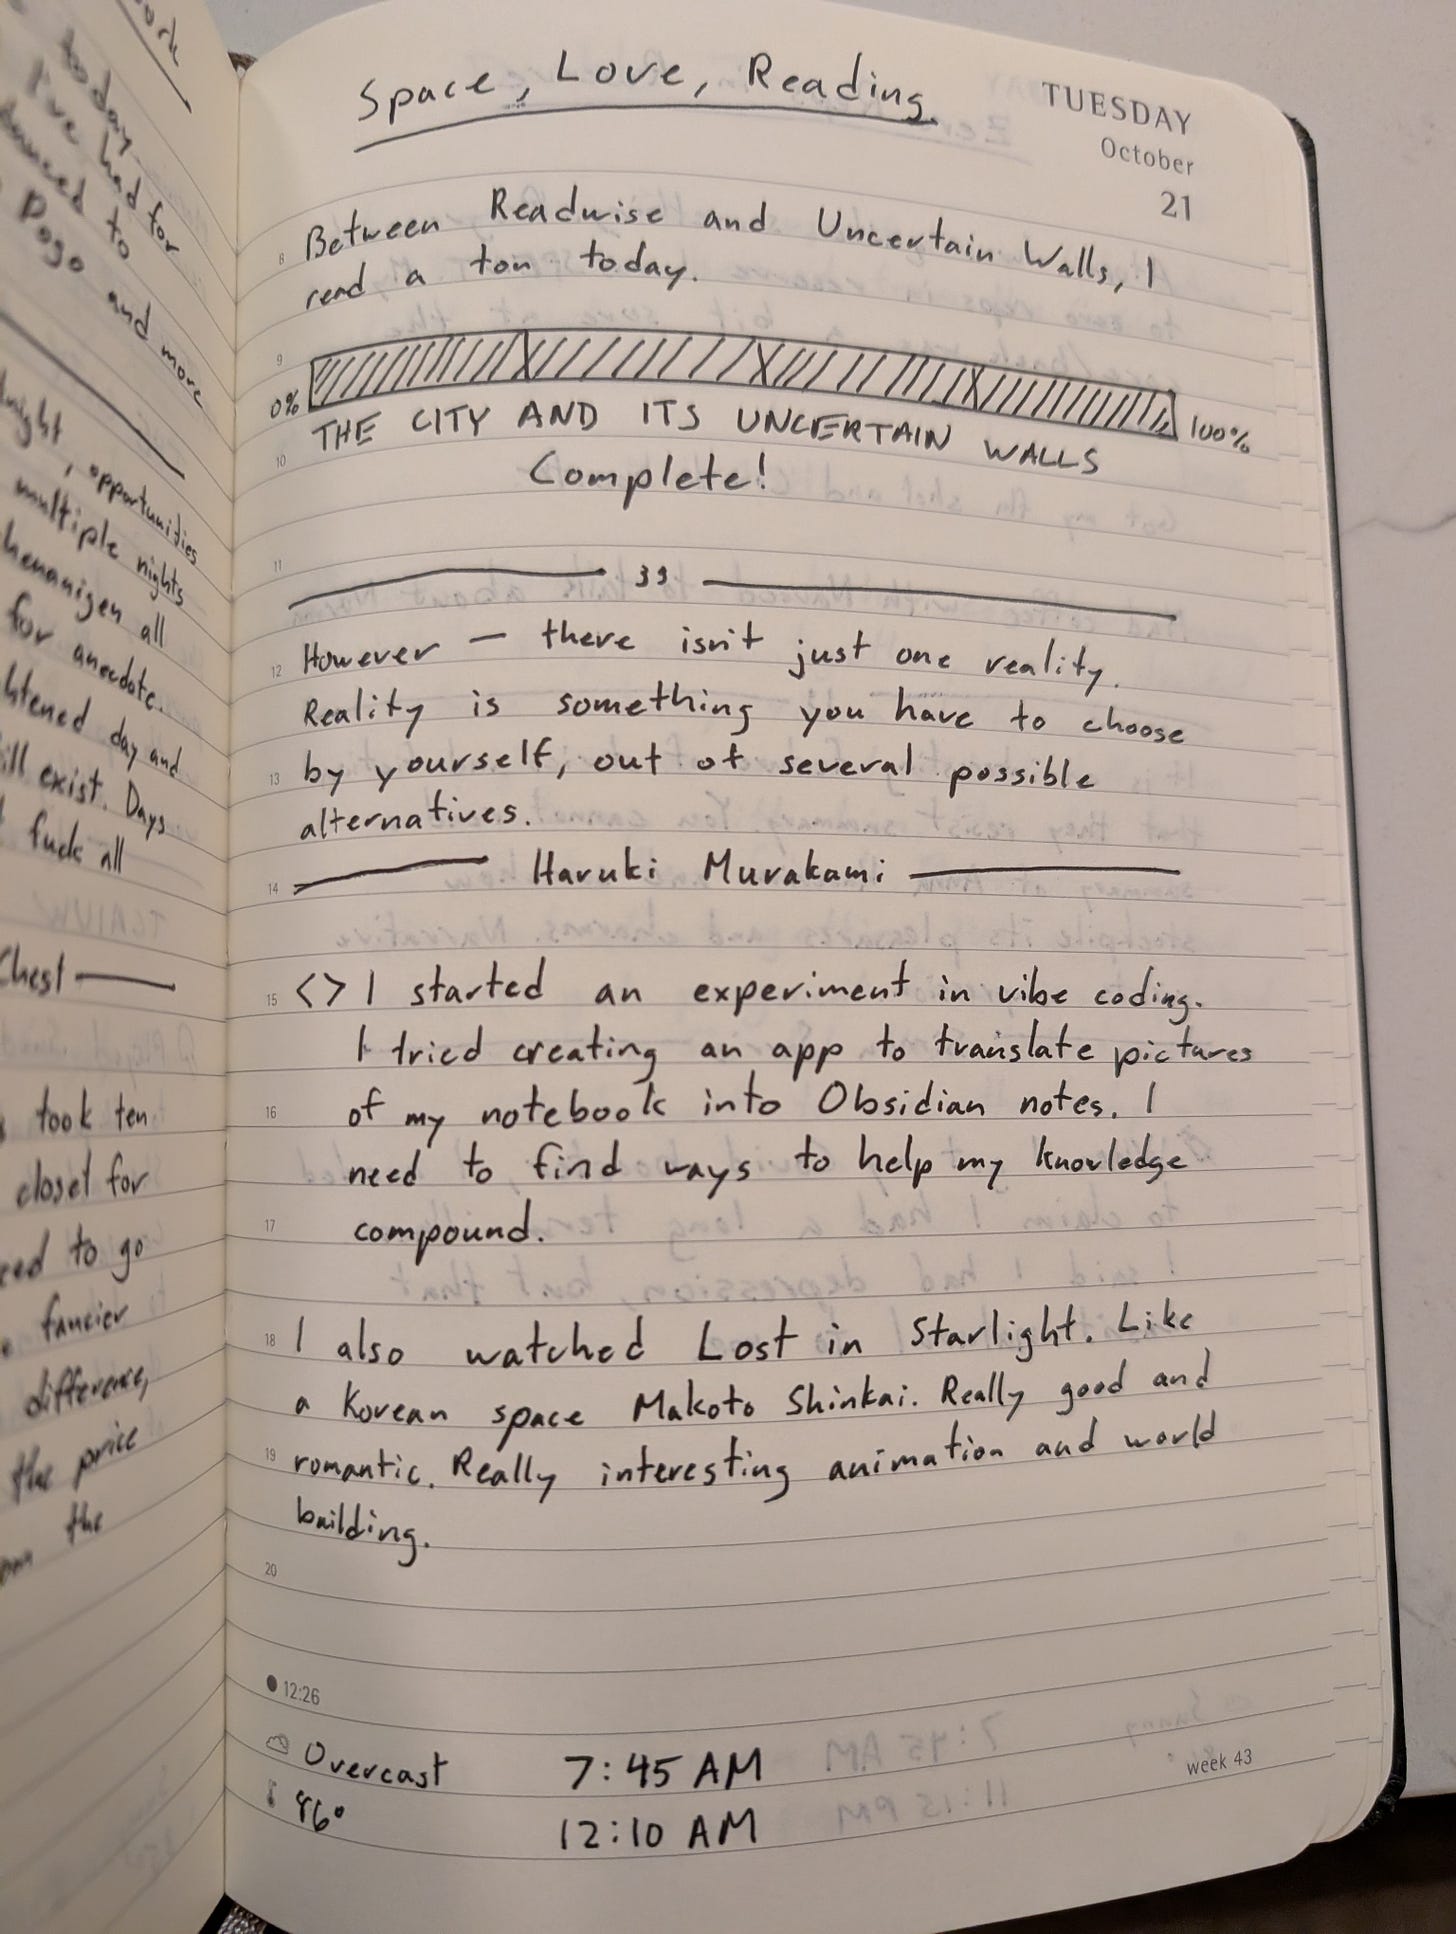 today
I've had for
to
and more
opportunities
multiple nights
all
for anecdote.
day and
exist. Days
fuck all
Chest
took ten
closet for
to go
fancier
difference,
the price
the
Space, Love, Reading.
TUESDAY
October
21
8 Between Readwise and Uncertain Walls, I
read a ton today.
9
0% 100%
THE CITY AND ITS UNCERTAIN WALLS
10
Complete!
11
39
12 However — there isn't just one reality.
Reality is something you have to choose
13 by yourself, out of several possible
alternatives.
14 Haruki Murakami
15 <> I started an experiment in vibe coding.
I tried creating an app to translate pictures
16 of my notebook into Obsidian notes. I
need to find ways to help my knowledge
17 compound.
18 I also watched Lost in Starlight. Like
a Korean space Makoto Shinkai. Really good and
19 romantic. Really interesting animation and world
building.
20
12:26
Overcast 7:45 AM
week 43
86° 12:10 AM